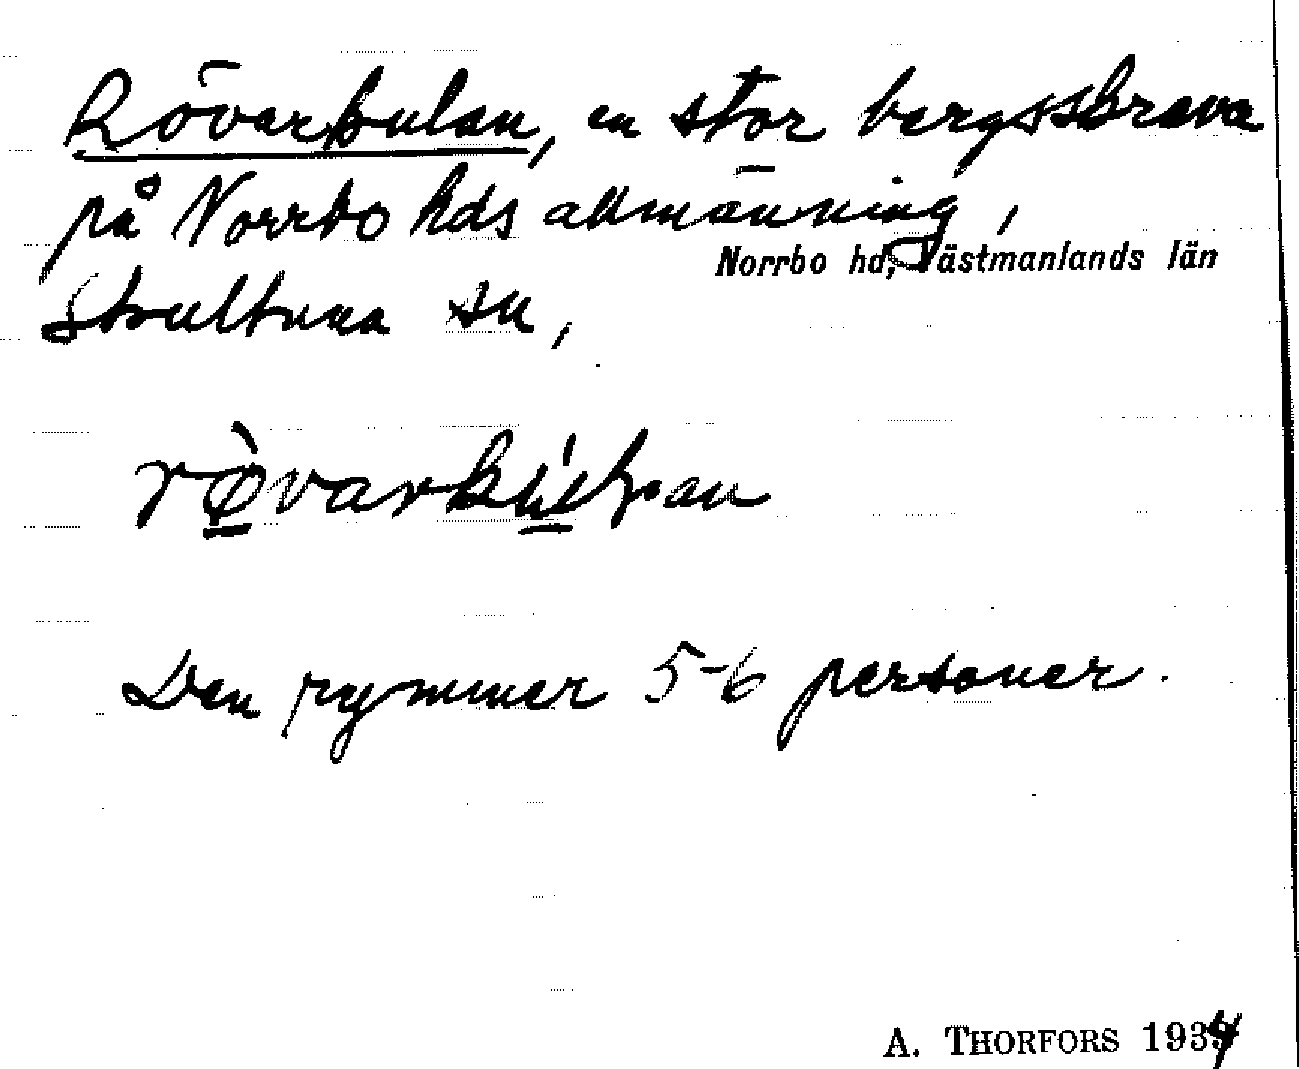 Rövarkulan, en stor bergsskreva
på Norrbo hds allmänning,
Norrbo hd, Västmanlands län
Skultuna sn,
Den rymmer 5-6 personer.
A. THORFORS 1934